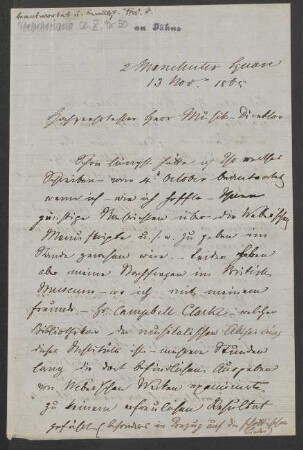 an Jähns
2 Manchester Square
13 Nov. 1865
Hochverehrtester Herr Musik-Direktor
Schon längst hätte ich Ihr werthes
Schreiben vom 4. October beantwortet
wenn ich – wie ich hoffte – Ihnen
günstige Nachrichten über die Weber'schen
Manuscripte u.s.w. zu geben im
Stande gewesen wäre – leider haben
aber meine Nachforschungen im British
Museum – wo ich mit meinem
Freunde – Hr. Campbell Clarke – welcher
Bibliothekar der musikalischen Abtheilung
dieses Instituts ist – mehrere Stunden
lang die dort befindlichen Ausgaben
von Weberschen Werken examinirte
zu keinem erfreulichen Resultat
geführt (besonders in Bezug auf die Schottischen
Lieder)